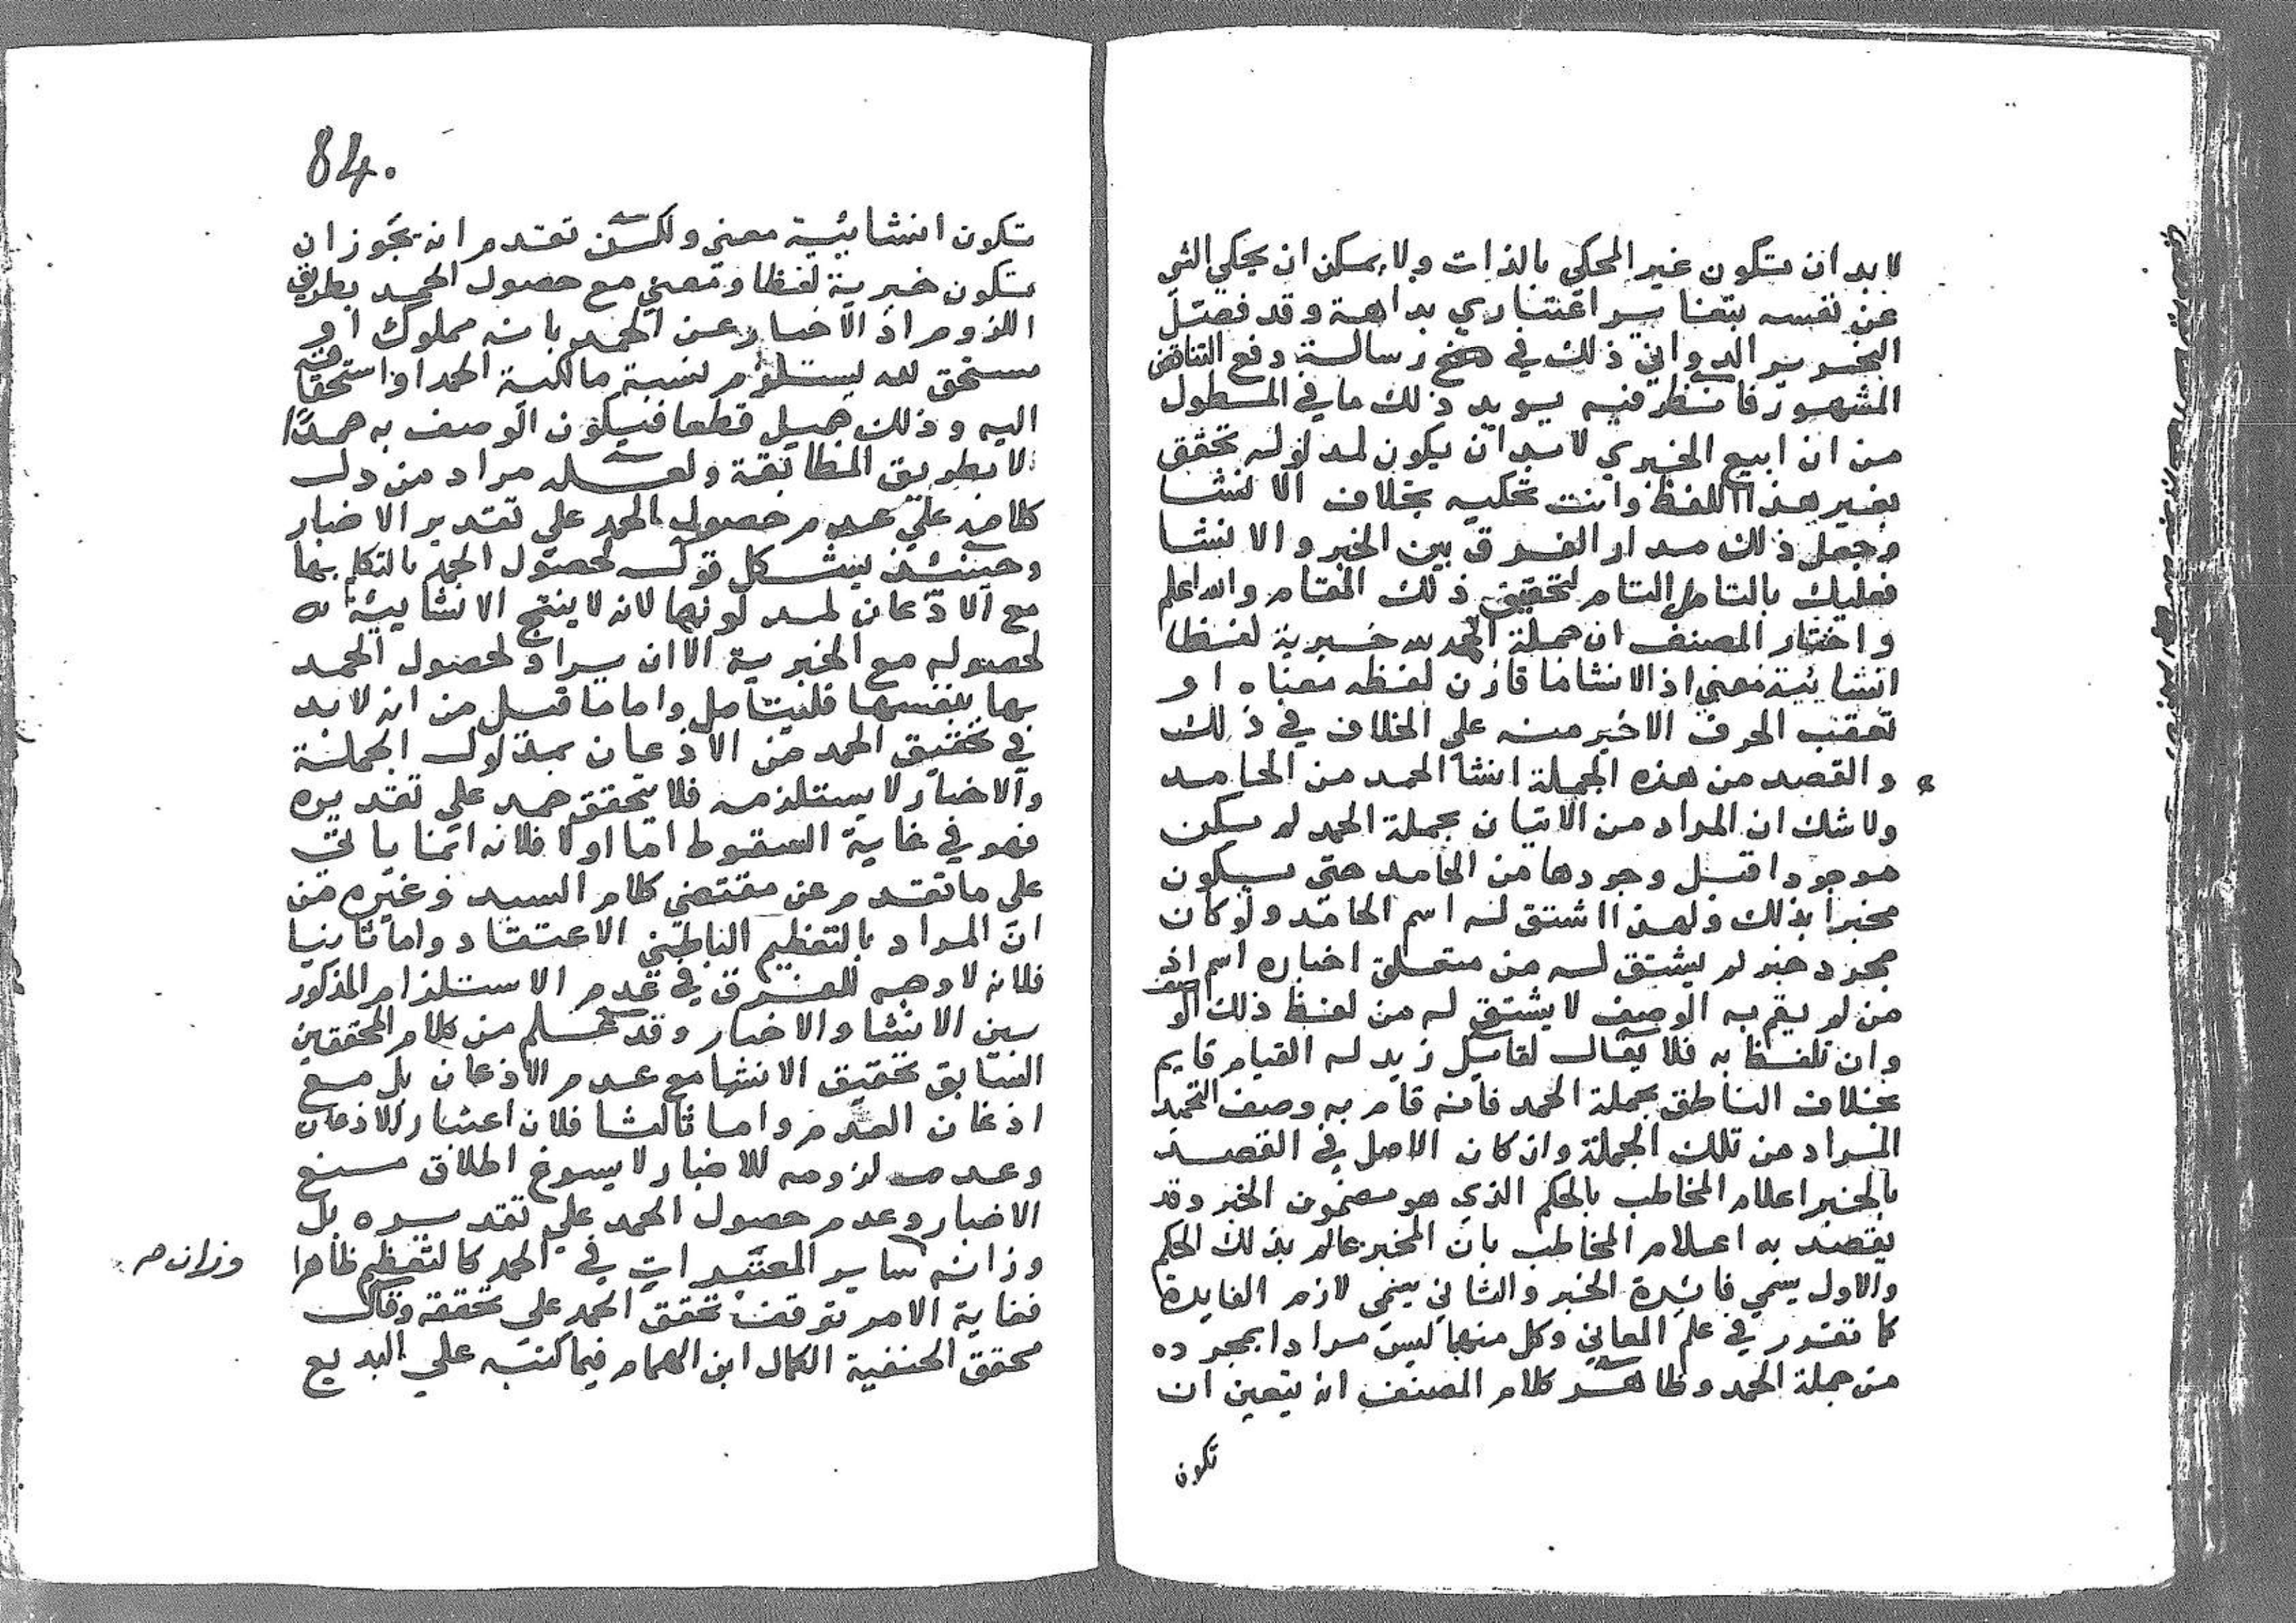 لا بد ان تكون غير المحكي بالذات ولا يمكن ان يحكي الشي
عن نفسه بتغاير اعتباري بداهة وقد فصل
النحرير الدواني ذلك في رسالة دفع التناقض
المشهور فانظر فيه يويد ذلك ما في المطول
من ان ابيع الخبري لا بد ان يكون لمدلوله تحقق
بغير هذا اللفظ وانت تحكيه بخلاف الانشا
وجعل ذلك مدار الفرق بين الخبر والانشا
فعليك بالتامل التام لتحقيق ذلك المقام والله اعلم
واختار المصنف ان جملة الحمد لله خبرية لفظا
انشائية معني اذ الانشا ما قارن لفظه معناه او
تعقب الحرف الاخير منه علي الخلاف في ذلك
والقصد من هذه الجملة انشا الحمد من الحامد
ولا شك ان المراد من الاتيان بجملة الحمد لم يكن
موجودا قبل وجودها من الحامد حتى يكون
مخبرا بذلك ولهذا اشتق له اسم الحامد ولو كان
مجرد خبر لم يشتق له من متعلق اخباره اسم اذ
من لم يقم به الوصف لا يشتق له من لفظ ذلك الوصف
وان تلفظ به فلا يقال لقايل زيد له القيام قايم
بخلاف الناطق بجملة الحمد فانه قام به وصف التحمد
المراد من تلك الجملة وان كان الاصل في القصد
بالخبر اعلام المخاطب بالحكم الذي هو مضمون الخبر وقد
يقصد به اعلام المخاطب بان المخبر عالم بذلك الحكم
والاول يسمي فائدة الخبر والثاني يسمى لازم الفايدة
كما تقرر في علم المعاني وكل منهما ليس مرادا بمجرده
من جملة الحمد وظاهر كلام المصنف انه يتعين ان
تكون
84.
تكون انشائية معني ولكن تقدم انه يجوز ان
تكون خبرية لفظا ومعني مع حصول الحمد بطريق
اللزوم اذ الاخبار عن الحمد بانه مملوك او
مستحق لله يستلزم نسبة مالكية الحمد او استحقاقه
اليه وذلك جميل قطعا فيكون الوصف به حمدا
لا بطريق المطابقة ولعله مراد من دل
كلامه علي عدم حصول الحمد علي تقدير الاخبار
وحينئذ يشكل قوله لحصول الحمد بالتكلم بها
مع الاذعان لمدلولها لانه لا ينتج الانشائية له
لحصوله مع الخبرية الا ان يراد لحصول الحمد
بها بنفسها فليتامل واما ما قيل من انه لا بد
في تحقيق الحمد من الاذعان بمدلول الجملة
والاخبار لا يستلزمه فلا يتحقق حمد علي تقديره
فهو في غاية السقوط اما اولا فلانه انما ياتي
على ما تقدم عن مقتضي كلام السيد وغيره من
ان المراد بالتعظيم الباطني الاعتقاد واما ثانيا
فلانه لا وجه للفرق في عدم الاستلزام المذكور
بين الانشا والاخبار وقد علم من كلام المحققين
السابق تحقيق الانشا مع عدم الاذعان بل مع
اذعان العدم واما ثالثا فلان اعتبار الاذعان
وعدم لزومه للاخبار لا يسوغ اطلاق منع
الاخبار وعدم حصول الحمد علي تقديره بل
وزانه ساير المعتبرات في الحمد كالتعظيم ظاهرا
وزان صـ
فغاية الامر توقف تحقق الحمد علي تحققه وقال
محقق الحنفية الكمال ابن الهمام فيما كتبه علي البديع